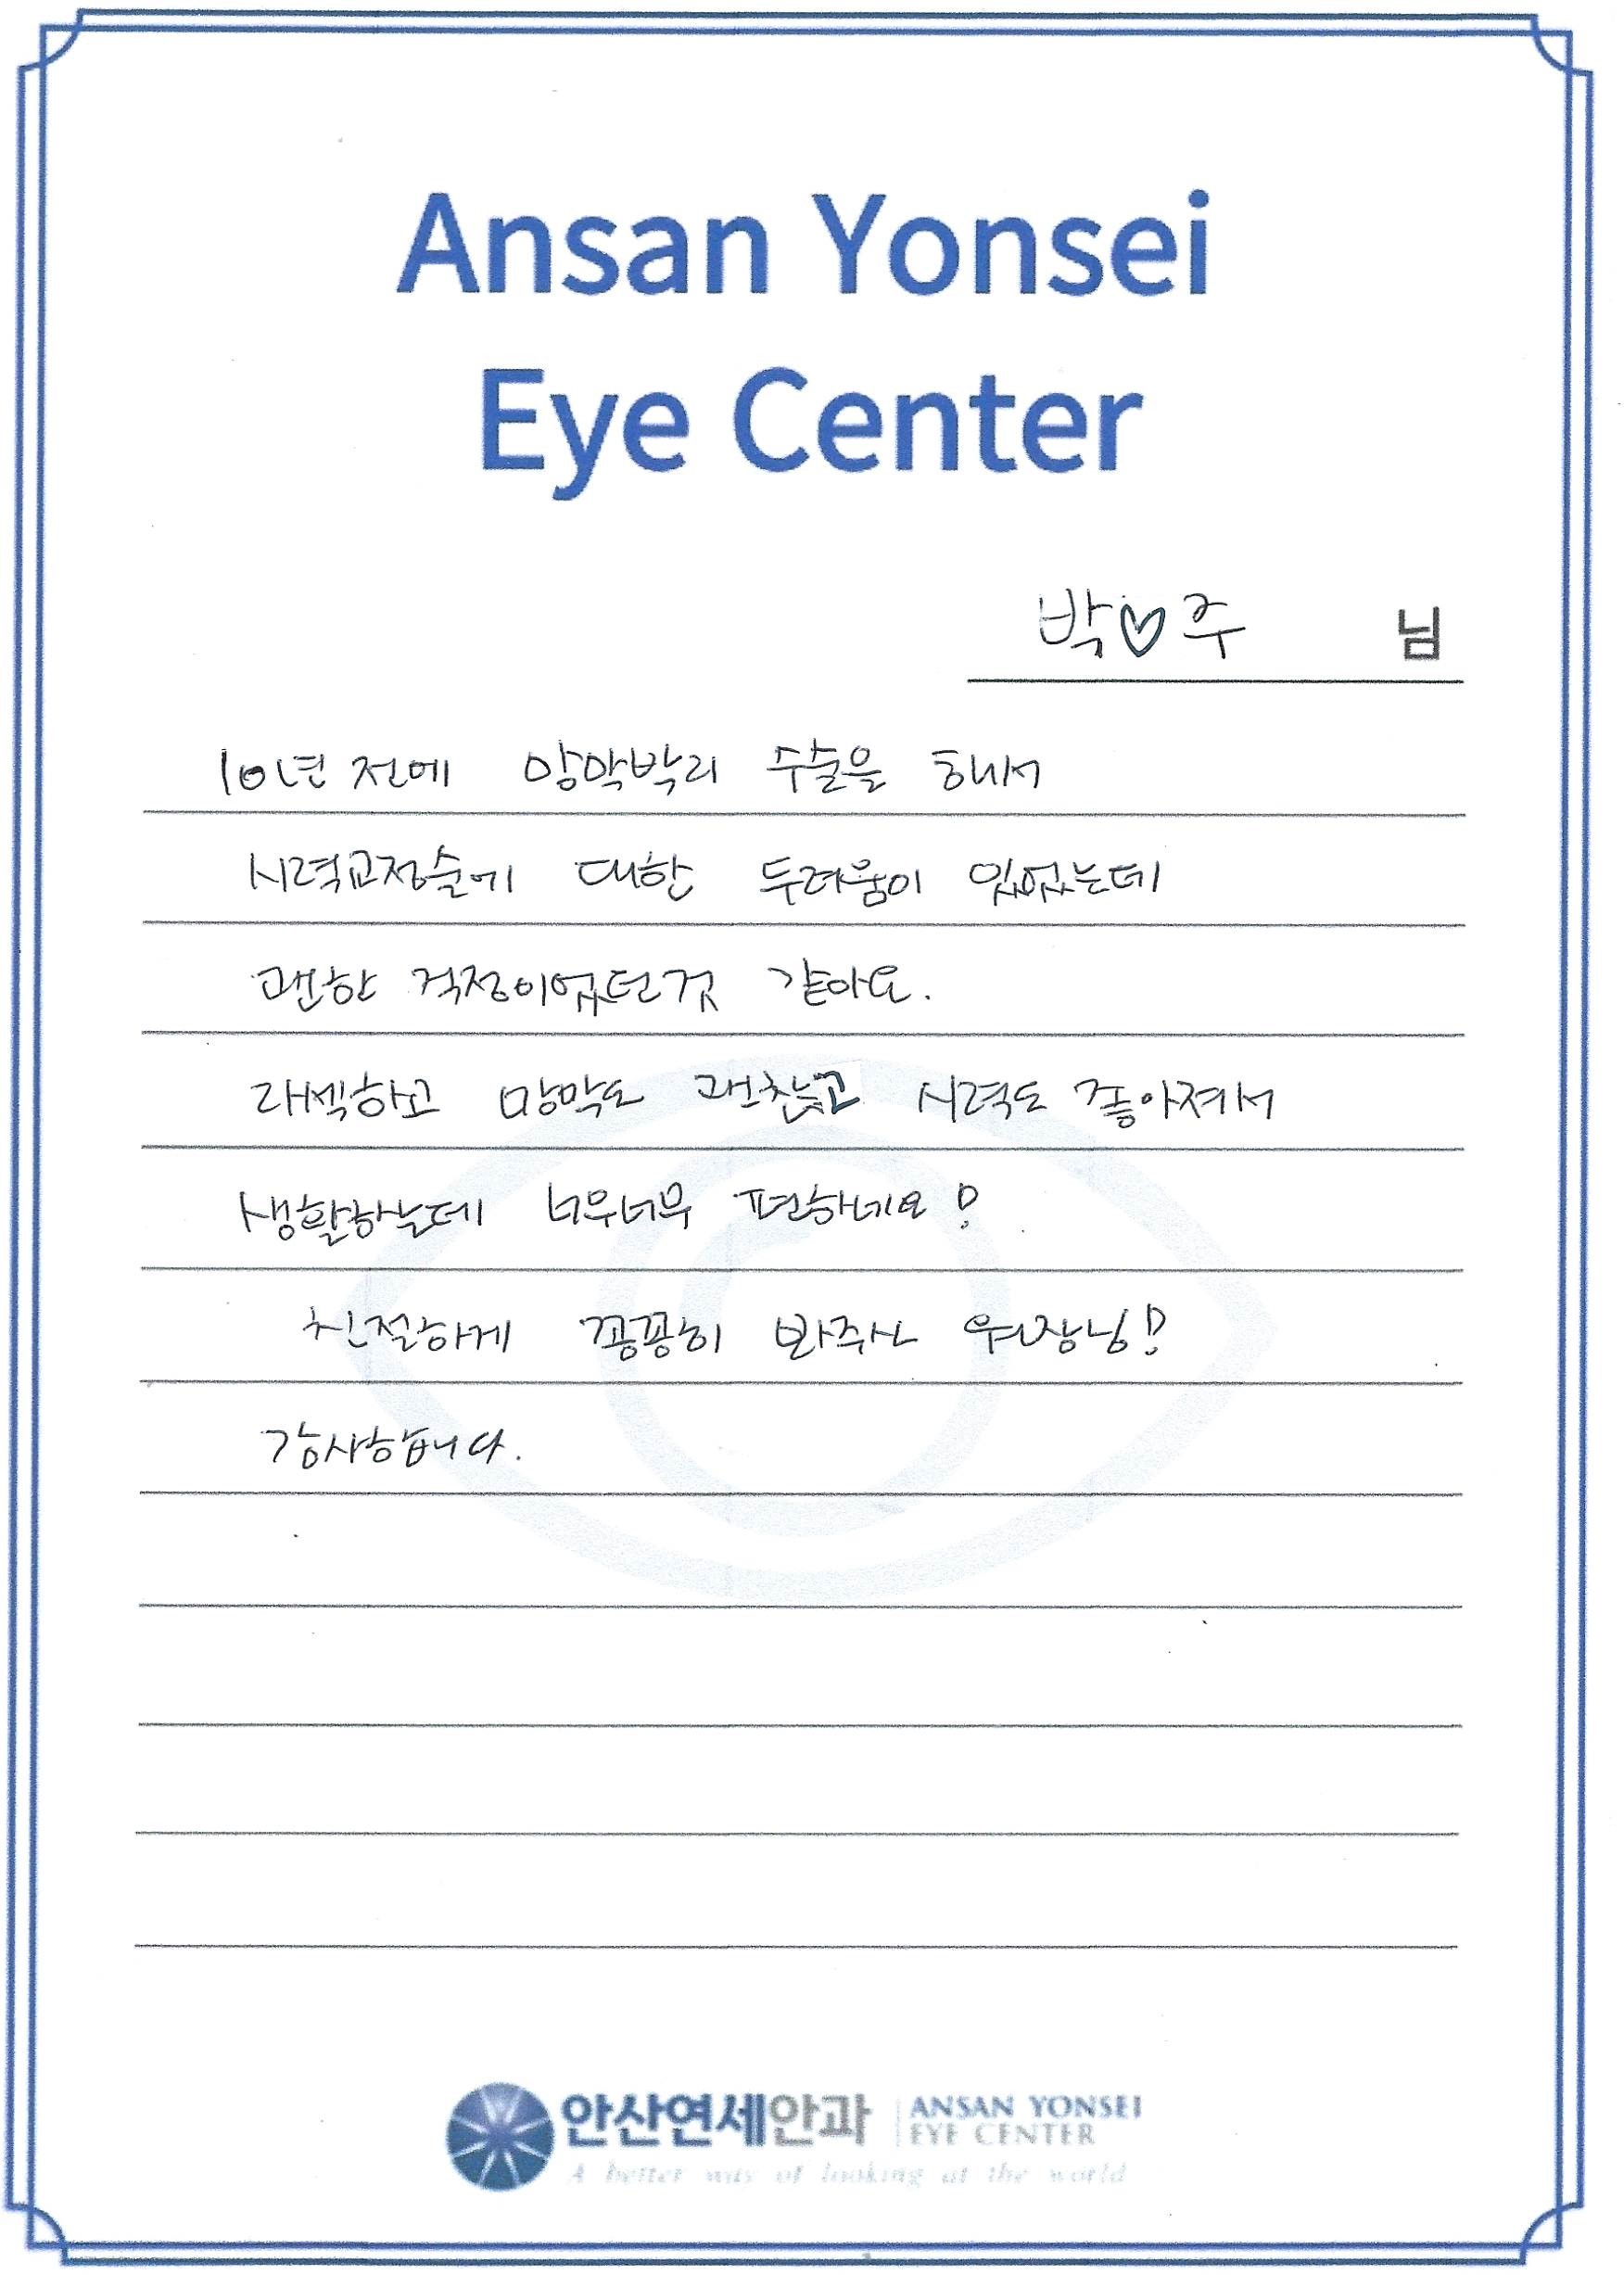 Ansan Yonsei
Eye Center
박♡주 님
10년 전에 망막박리 수술을 해서
시력교정술에 대한 두려움이 있었는데
괜한 걱정이었던것 같아요.
라섹하고 망막도 괜찮고 시력도 좋아져서
생활하는데 너무너무 편하네요!
친절하게 꼼꼼히 봐주신 원장님!!
감사합니다.
안산연세안과 ANSAN YONSEI
EYE CENTER
A better way of looking at the world